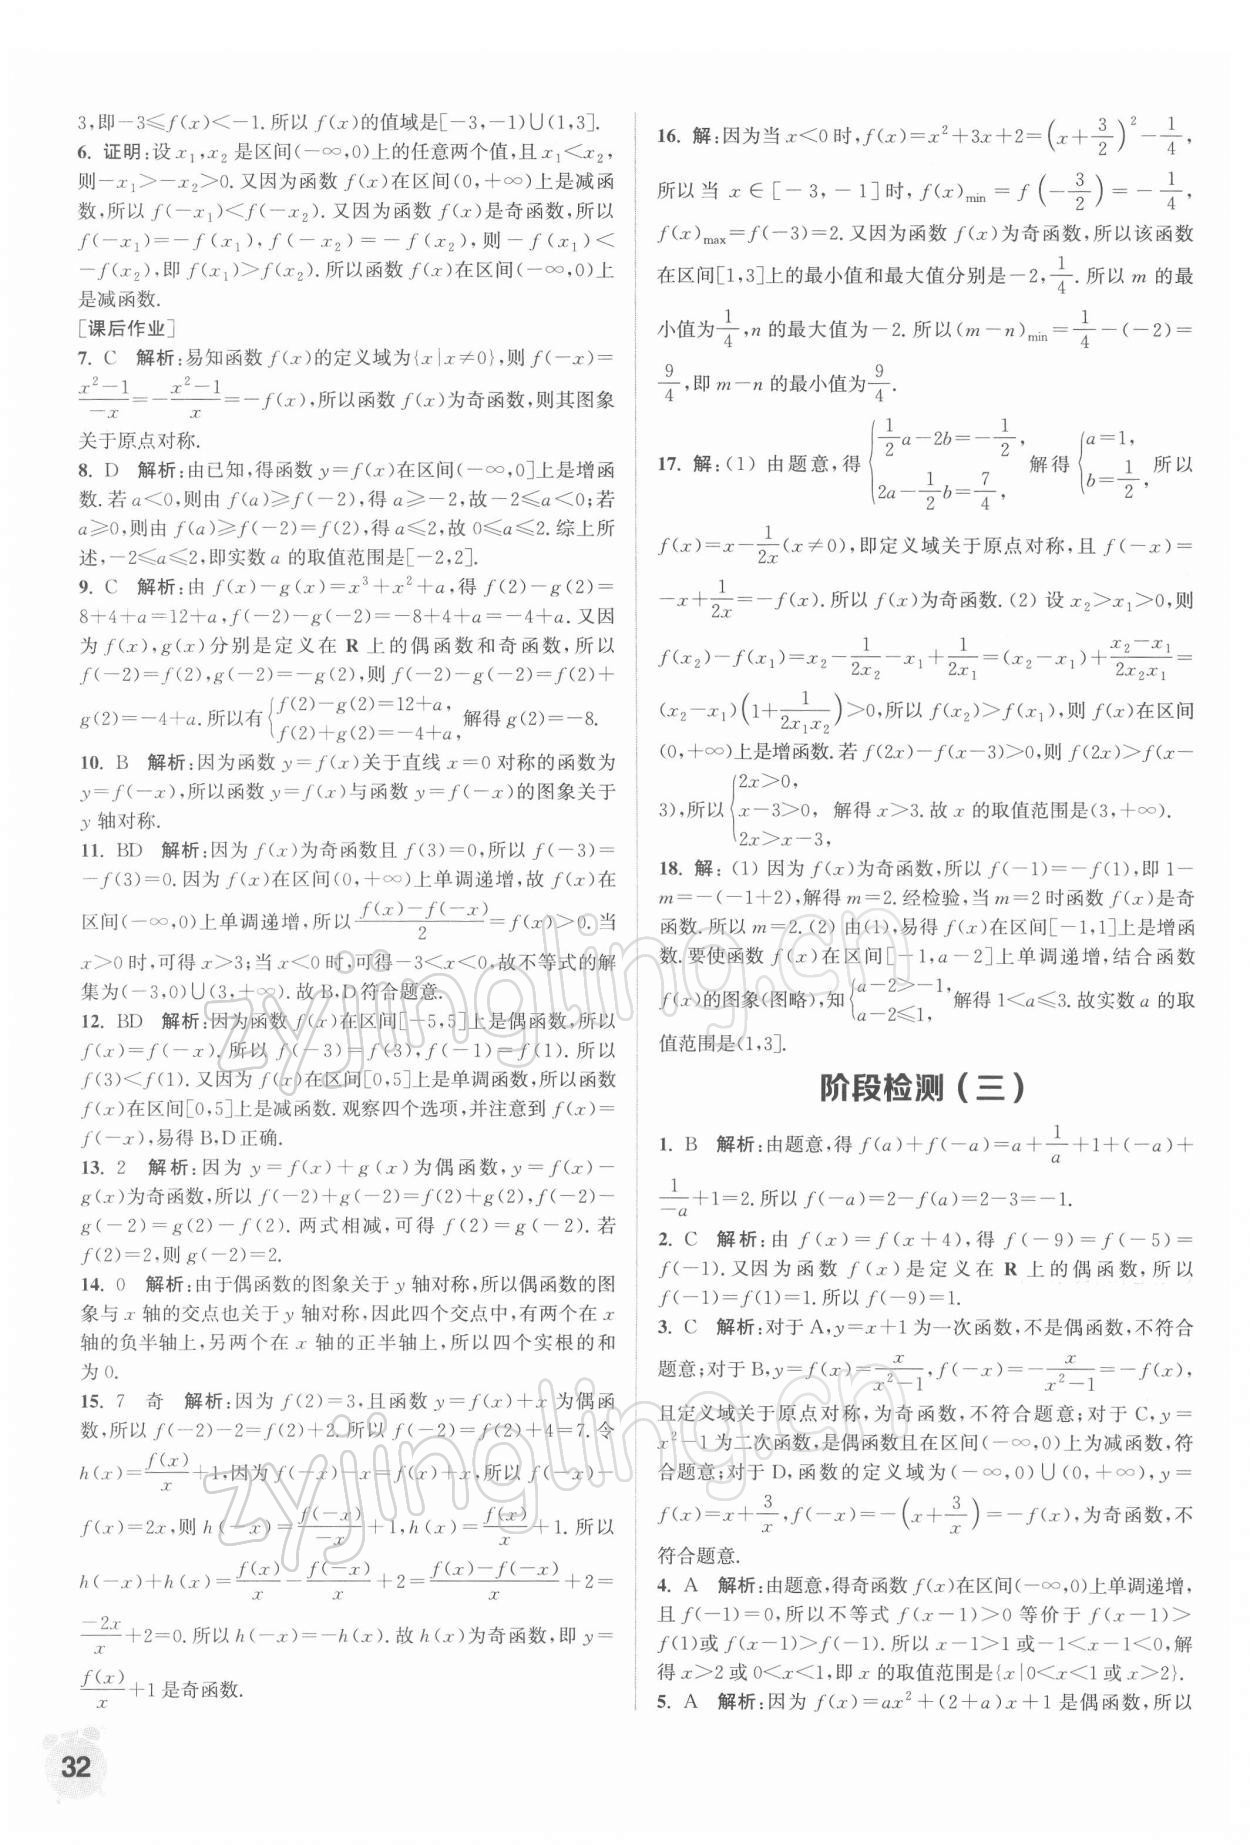 3,即−3≤f(x)<−1.所以 f(x)的值域是[−3,−1)∪(1,3].
6. 证明:设 x₁,x₂ 是区间(−∞,0)上的任意两个值,且x₁<x₂,
则−x₁>−x₂>0.又因为函数 f(x)在区间(0,+∞)上是减函
数,所以 f(−x₁)<f(−x₂).又因为函数 f(x)是奇函数,所以
f(−x₁)=−f(x₁),f(−x₂)=−f(x₂),则−f(x₁)<
−f(x₂),即 f(x₁)>f(x₂).所以函数 f(x)在区间(−∞,0)上
是减函数.
[课后作业]
7. C 解析:易知函数 f(x)的定义域为{x|x≠0},则 f(−x)=
(x²−1)/(−x)=−(x²−1)/x=−f(x),所以函数 f(x)为奇函数,则其图象
关于原点对称.
8. D 解析:由已知,得函数 y=f(x)在区间(−∞,0]上是增函
数.若 a<0,则由 f(a)≥f(−2),得 a≥−2,故−2≤a<0;若
a≥0,则由 f(a)≥f(−2)=f(2),得 a≤2,故 0≤a≤2.综上所
述,−2≤a≤2,即实数 a 的取值范围是[−2,2].
9. C 解析:由 f(x)−g(x)=x³+x²+a,得 f(2)−g(2)=
8+4+a=12+a,f(−2)−g(−2)=−8+4+a=−4+a.又因
为 f(x),g(x)分别是定义在 R 上的偶函数和奇函数,所以
f(−2)=f(2),g(−2)=−g(2),则 f(−2)−g(−2)=f(2)+
g(2)=−4+a.所以有{f(2)−g(2)=12+a, f(2)+g(2)=−4+a, 解得 g(2)=−8.
10. B 解析:因为函数 y=f(x)关于直线 x=0 对称的函数为
y=f(−x),所以函数 y=f(x)与函数 y=f(−x)的图象关于
y 轴对称.
11. BD 解析:因为 f(x)为奇函数且 f(3)=0,所以 f(−3)=
−f(3)=0.因为 f(x)在区间(0,+∞)上单调递增,故 f(x)在
区间(−∞,0)上单调递增,所以(f(x)−f(−x))/2=f(x)>0.当
x>0 时,可得 x>3;当 x<0 时,可得−3<x<0,故不等式的解
集为(−3,0)∪(3,+∞).故 B,D符合题意.
12. BD 解析:因为函数 f(x)在区间[−5,5]上是偶函数,所以
f(x)=f(−x).所以 f(−3)=f(3),f(−1)=f(1).所以
f(3)<f(1).又因为 f(x)在区间[0,5]上是单调函数,所以函数
f(x)在区间[0,5]上是减函数.观察四个选项,并注意到 f(x)=
f(−x),易得 B,D正确.
13. 2 解析:因为 y=f(x)+g(x)为偶函数,y=f(x)−
g(x)为奇函数,所以 f(−2)+g(−2)=f(2)+g(2),f(−2)−
g(−2)=g(2)−f(2).两式相减,可得 f(2)=g(−2).若
f(2)=2,则 g(−2)=2.
14. 0 解析:由于偶函数的图象关于 y 轴对称,所以偶函数的图
象与 x 轴的交点也关于 y 轴对称,因此四个交点中,有两个在 x
轴的负半轴上,另两个在 x 轴的正半轴上,所以四个实根的和
为 0.
15. 7 奇 解析:因为 f(2)=3,且函数 y=f(x)+x 为偶函
数,所以 f(−2)−2=f(2)+2.所以 f(−2)=f(2)+4=7.令
h(x)=f(x)/x+1,因为 f(−x)−x=f(x)+x,所以 f(−x)−
f(x)=2x,则 h(−x)=f(−x)/(−x)+1,h(x)=f(x)/x+1.所以
h(−x)+h(x)=f(x)/x−f(−x)/x+2=(f(x)−f(−x))/x+2=
−2x/x+2=0.所以 h(−x)=−h(x).故 h(x)为奇函数,即 y=
f(x)/x+1 是奇函数.
32
16. 解:因为当 x<0 时,f(x)=x²+3x+2=(x+3/2)²−1/4,
所以当 x∈[−3,−1]时,f(x)min=f(−3/2)=−1/4,
f(x)max=f(−3)=2.又因为函数 f(x)为奇函数,所以该函数
在区间[1,3]上的最小值和最大值分别是−2,1/4.所以 m 的最
小值为1/4,n 的最大值为−2.所以(m−n)min=1/4−(−2)=
9/4,即 m−n 的最小值为9/4.
17. 解:(1) 由题意,得{1/2a−2b=−1/2, 2a−1/2b=7/4, 解得{a=1, b=1/2, 所以
f(x)=x−1/2x(x≠0),即定义域关于原点对称,且 f(−x)=
−x+1/2x=−f(x).所以 f(x)为奇函数.(2) 设 x₂>x₁>0,则
f(x₂)−f(x₁)=x₂−1/2x₂−x₁+1/2x₁=(x₂−x₁)+(x₂−x₁)/2x₂x₁=
(x₂−x₁)(1+1/2x₁x₂)>0,所以 f(x₂)>f(x₁),则 f(x)在区间
(0,+∞)上是增函数.若 f(2x)−f(x−3)>0,则 f(2x)>f(x−
3),所以{2x>0, x−3>0, 2x>x−3, 解得 x>3.故 x 的取值范围是(3,+∞).
18. 解:(1) 因为 f(x)为奇函数,所以 f(−1)=−f(1),即 1−
m=−(−1+2),解得 m=2.经检验,当 m=2时函数 f(x)是奇
函数.所以 m=2.(2) 由(1),易得 f(x)在区间[−1,1]上是增函
数.要使函数 f(x)在区间[−1,a−2]上单调递增,结合函数
f(x)的图象(图略),知{a−2>−1, a−2≤1, 解得 1<a≤3.故实数 a 的取
值范围是(1,3].
阶段检测(三)
1. B 解析:由题意,得 f(a)+f(−a)=a+1/a+1+(−a)+
1/−a+1=2.所以 f(−a)=2−f(a)=2−3=−1.
2. C 解析:由 f(x)=f(x+4),得 f(−9)=f(−5)=
f(−1).又因为函数 f(x)是定义在 R 上的偶函数,所以
f(−1)=f(1)=1.所以 f(−9)=1.
3. C 解析:对于 A,y=x+1为一次函数,不是偶函数,不符合
题意;对于 B,y=f(x)=x/(x²−1),f(−x)=−x/(x²−1)=−f(x),
且定义域关于原点对称,为奇函数,不符合题意;对于 C,y=
x²−1为二次函数,是偶函数且在区间(−∞,0)上为减函数,符
合题意;对于 D,函数的定义域为(−∞,0)∪(0,+∞),y=
f(x)=x+3/x,f(−x)=−(x+3/x)=−f(x),为奇函数,不
符合题意.
4. A 解析:由题意,得奇函数 f(x)在区间(−∞,0)上单调递增,
且 f(−1)=0,所以不等式 f(x−1)>0 等价于 f(x−1)>
f(1)或 f(x−1)>f(−1).所以 x−1>1 或−1<x−1<0,解
得 x>2 或 0<x<1,即 x 的取值范围是{x|0<x<1或x>2}.
5. A 解析:因为 f(x)=ax²+(2+a)x+1 是偶函数,所以
zyjingling.cn
zyjingling.cn